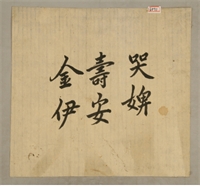 哭婢
壽安
金伊